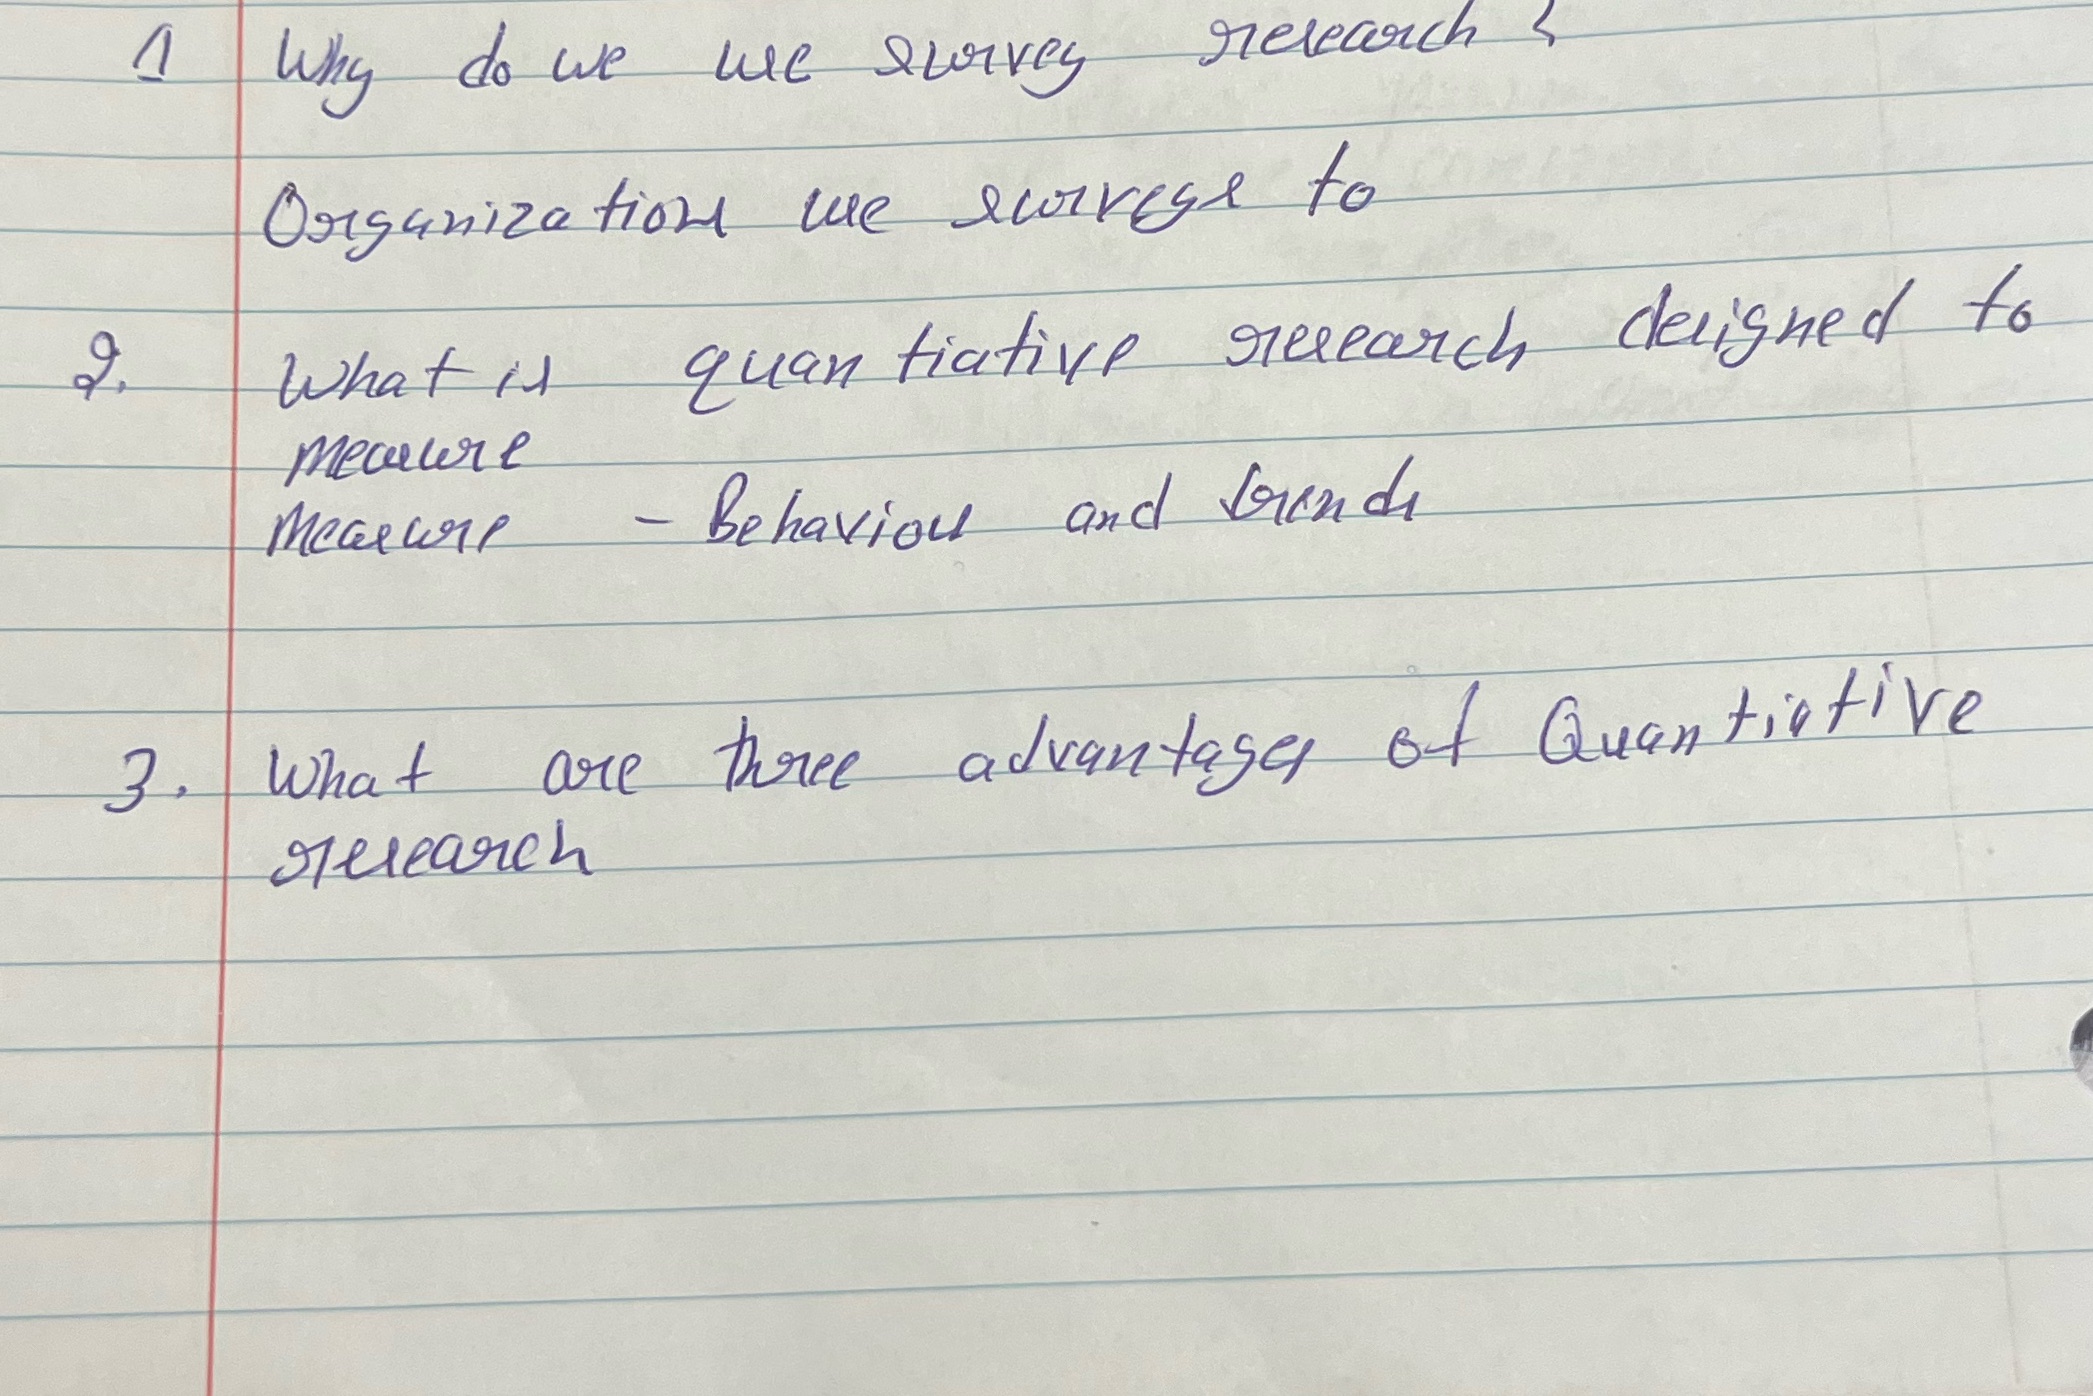 1 Why do we use survey research?
Organizations use surveys to
2. What is quantiative research designed to
measure
Measure - Behaviors and trends
3. What are three advantages of Quantiative
research